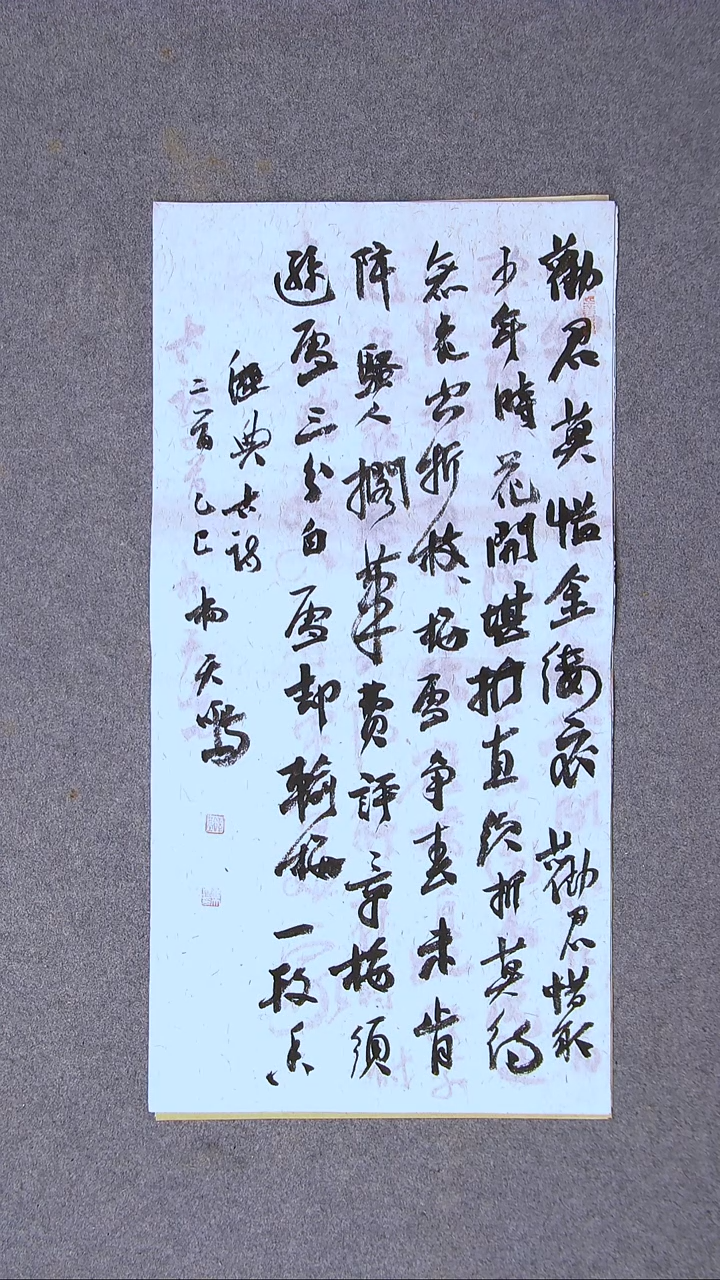 勸君莫惜金縷衣勸君惜取
少年時花開堪折直須折莫待
無花空折枝梅雪争春未肯
降騷人擱筆費評章梅須
遜雪三分白雪却輸梅一段香
經典古詩
二首乙巳楊天